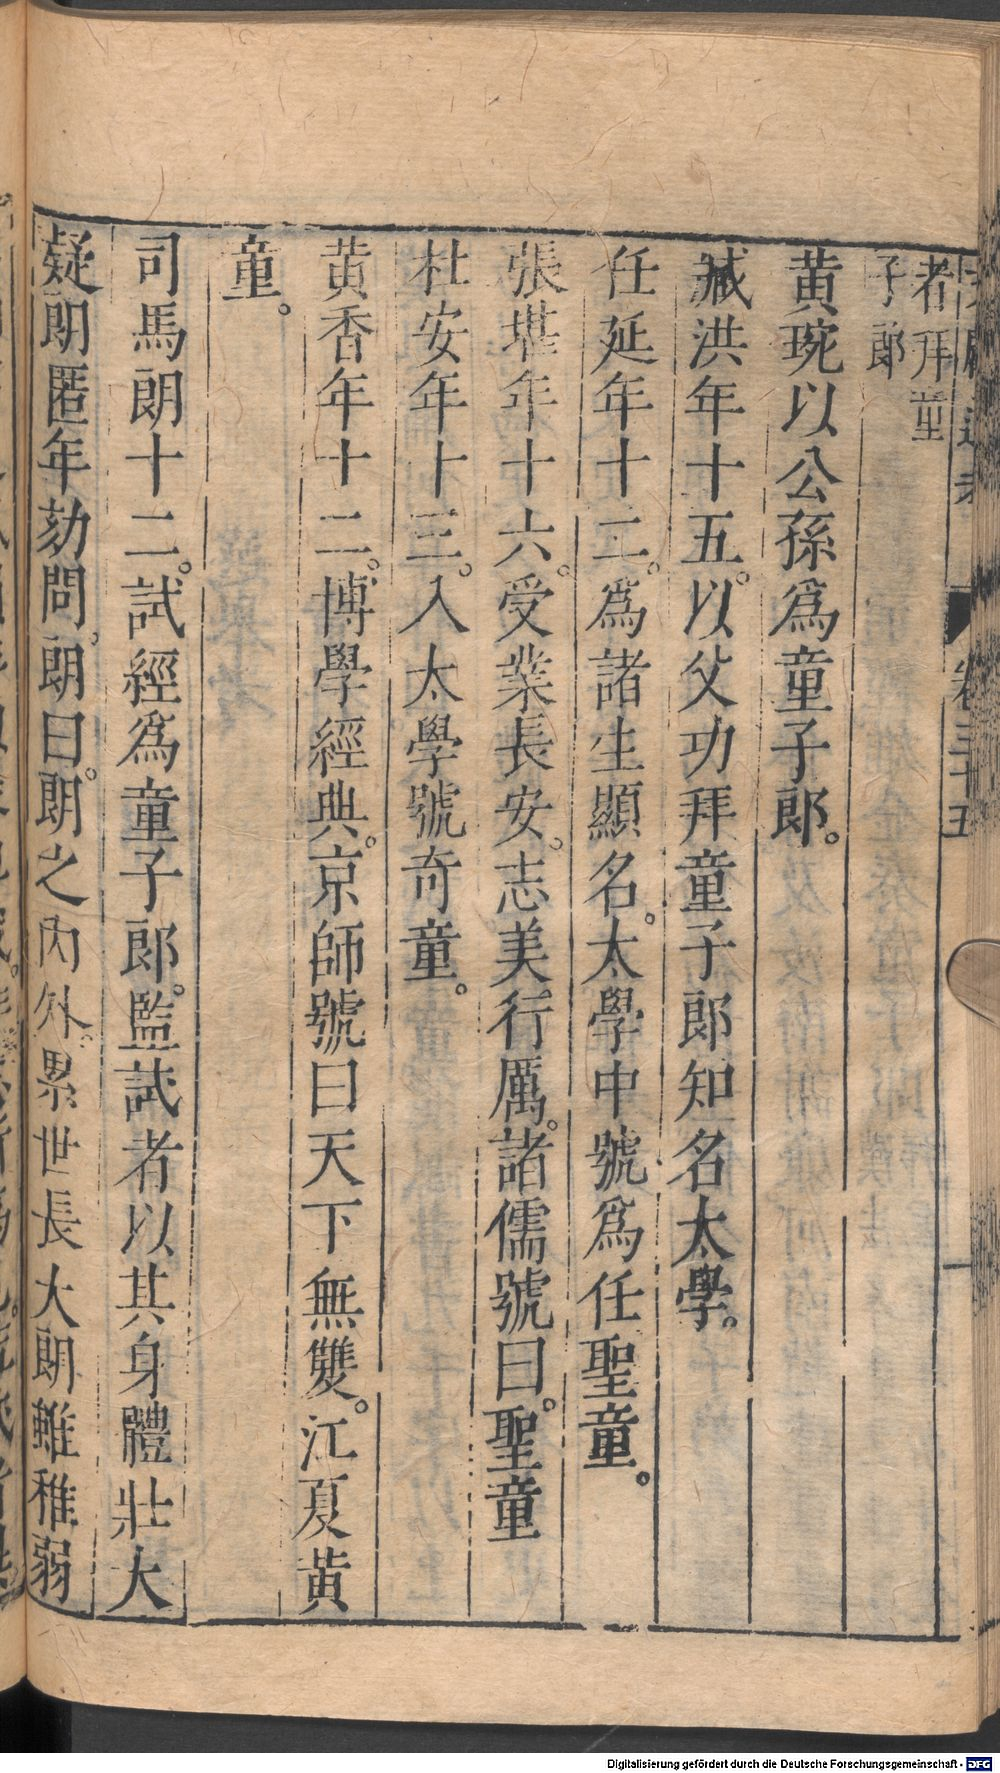 卷三十五
者拜童
子郎
黄琬以公孫爲童子郎。
臧洪年十五。以父功拜童子郎知名太學。
任延年十二。爲諸生顯名。太學中號爲任聖童。
張堪年十六。受業長安。志美行厲。諸儒號曰。聖童
杜安年十三。入太學號奇童。
黄香年十二。博學經典。京師號曰天下無雙。江夏黄
童。
司馬朗十二。試經爲童子郎。監試者以其身體壯大
疑朗匿年劾問。朗曰。朗之内外。累世長大朗雖稚弱
Digitalisierung gefördert durch die Deutsche Forschungsgemeinschaft - DFG